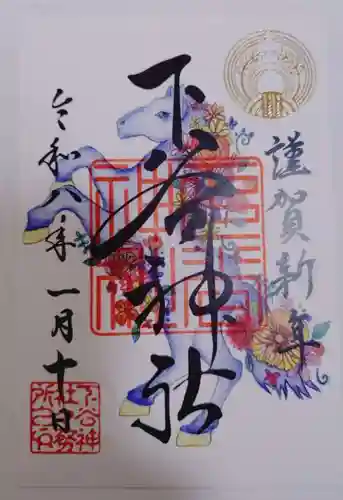 謹賀新年
下谷神社
令和八年一月十日
下谷神
社務
所之印